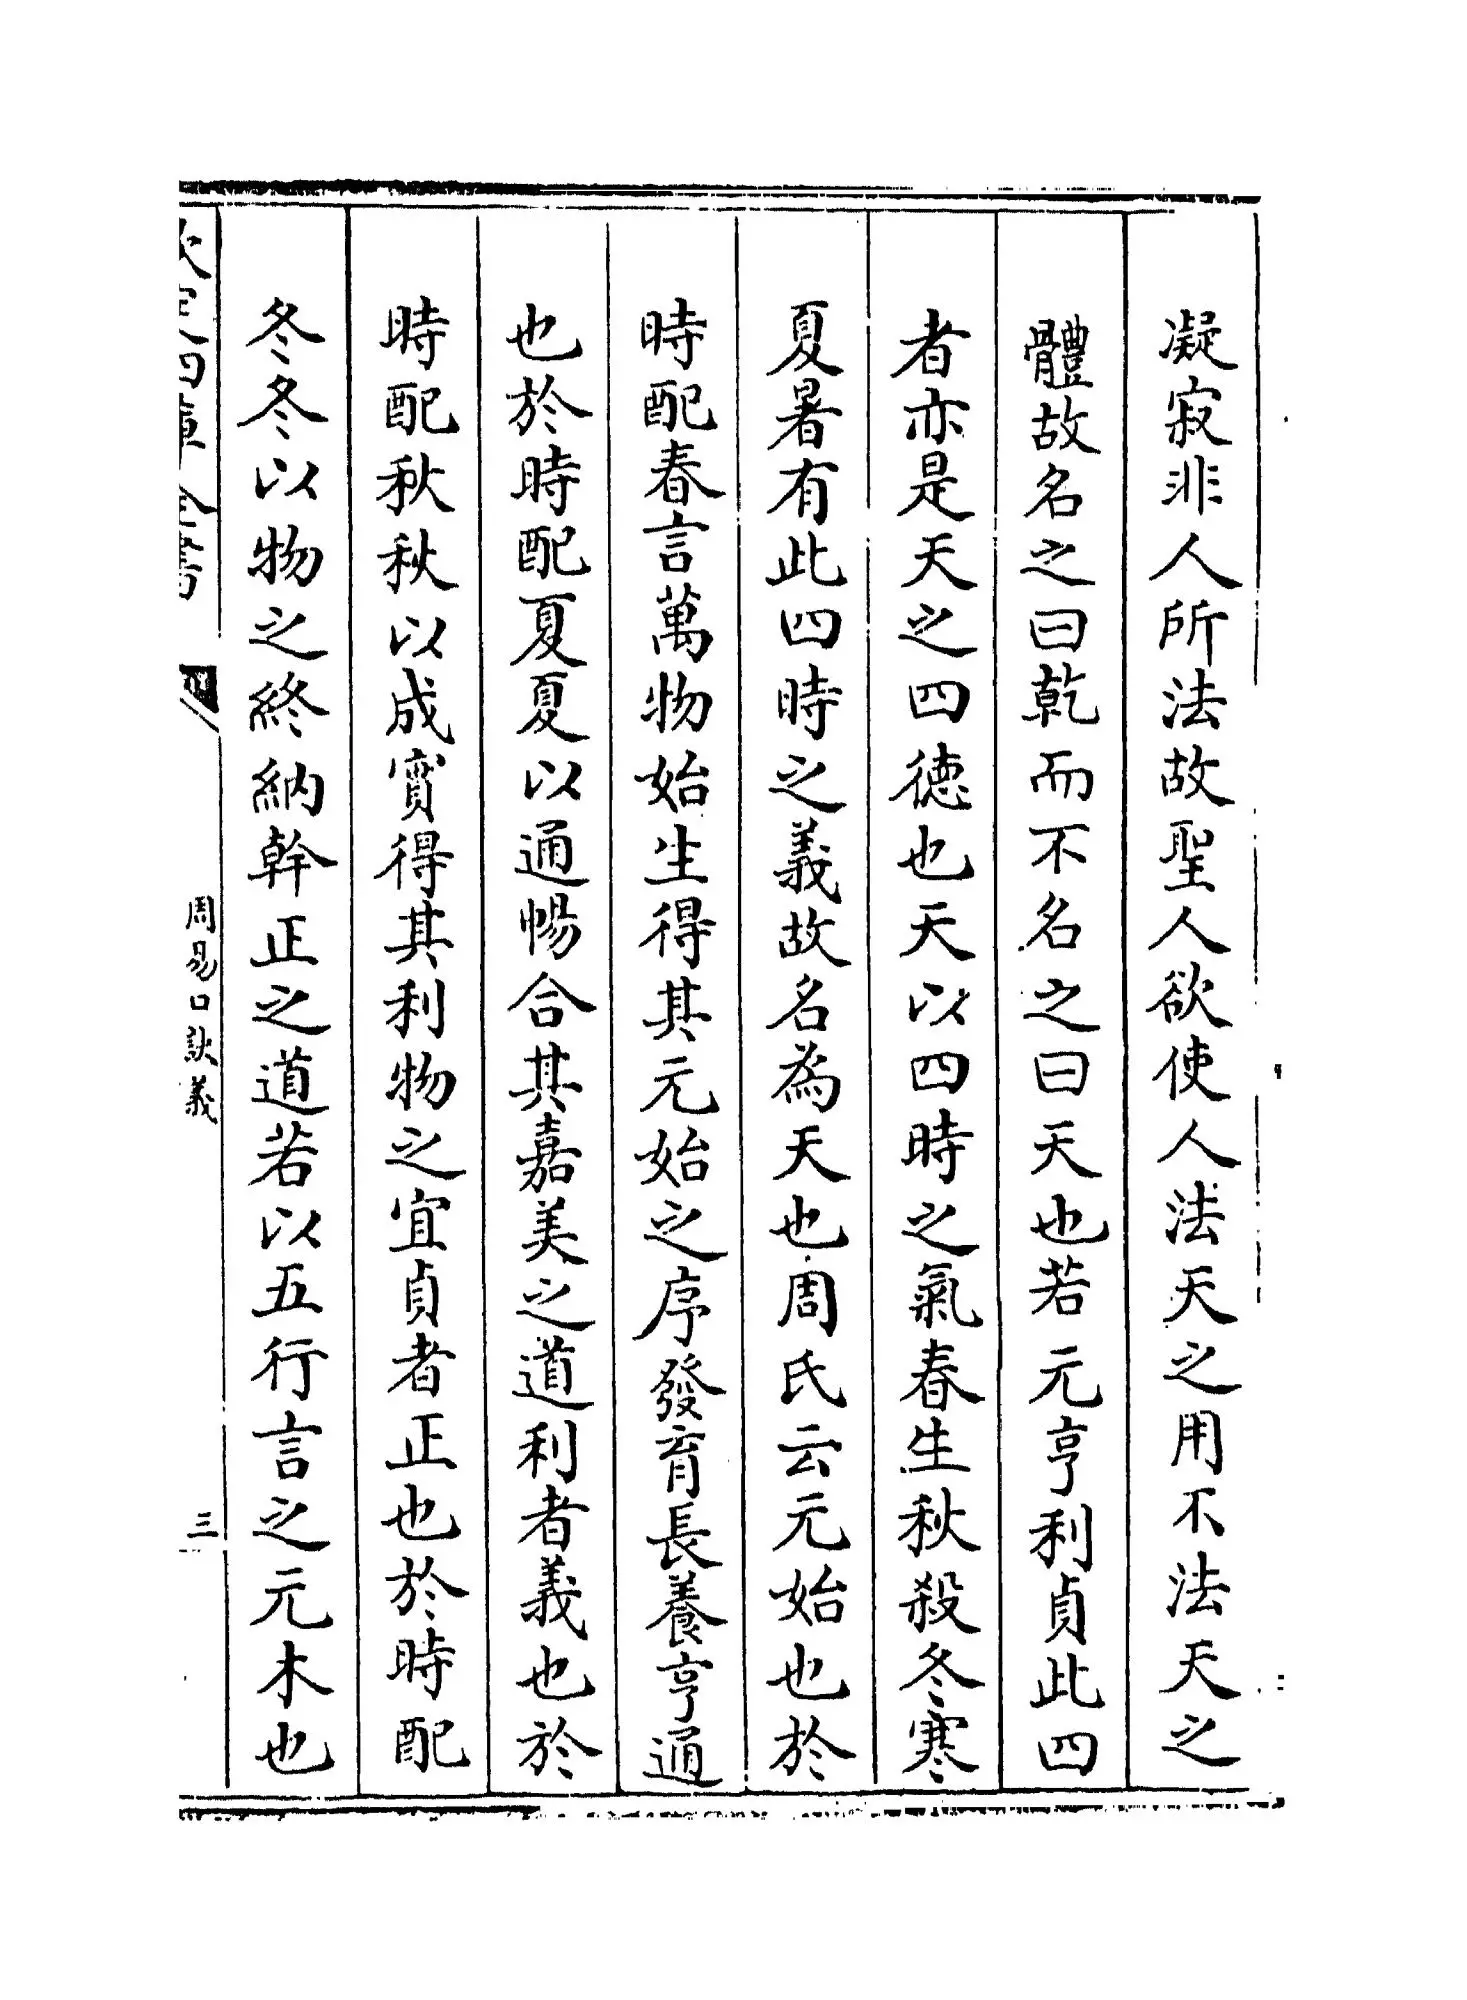 凝寂非人所法故聖人欲使人法天之用不法天之
體故名之曰乾而不名之曰天也若元亨利貞此四
者亦是天之四德也天以四時之氣春生秋殺冬寒
夏暑有此四時之義故名為天也周氏云元始也於
時配春言萬物始生得其元始之序發育長養亨通
也於時配夏夏以通暢合其嘉美之道利者義也於
時配秋秋以成實得其利物之宜貞者正也於時配
冬冬以物之終納幹正之道若以五行言之元木也
欽定四庫全書
周易口訣義
三